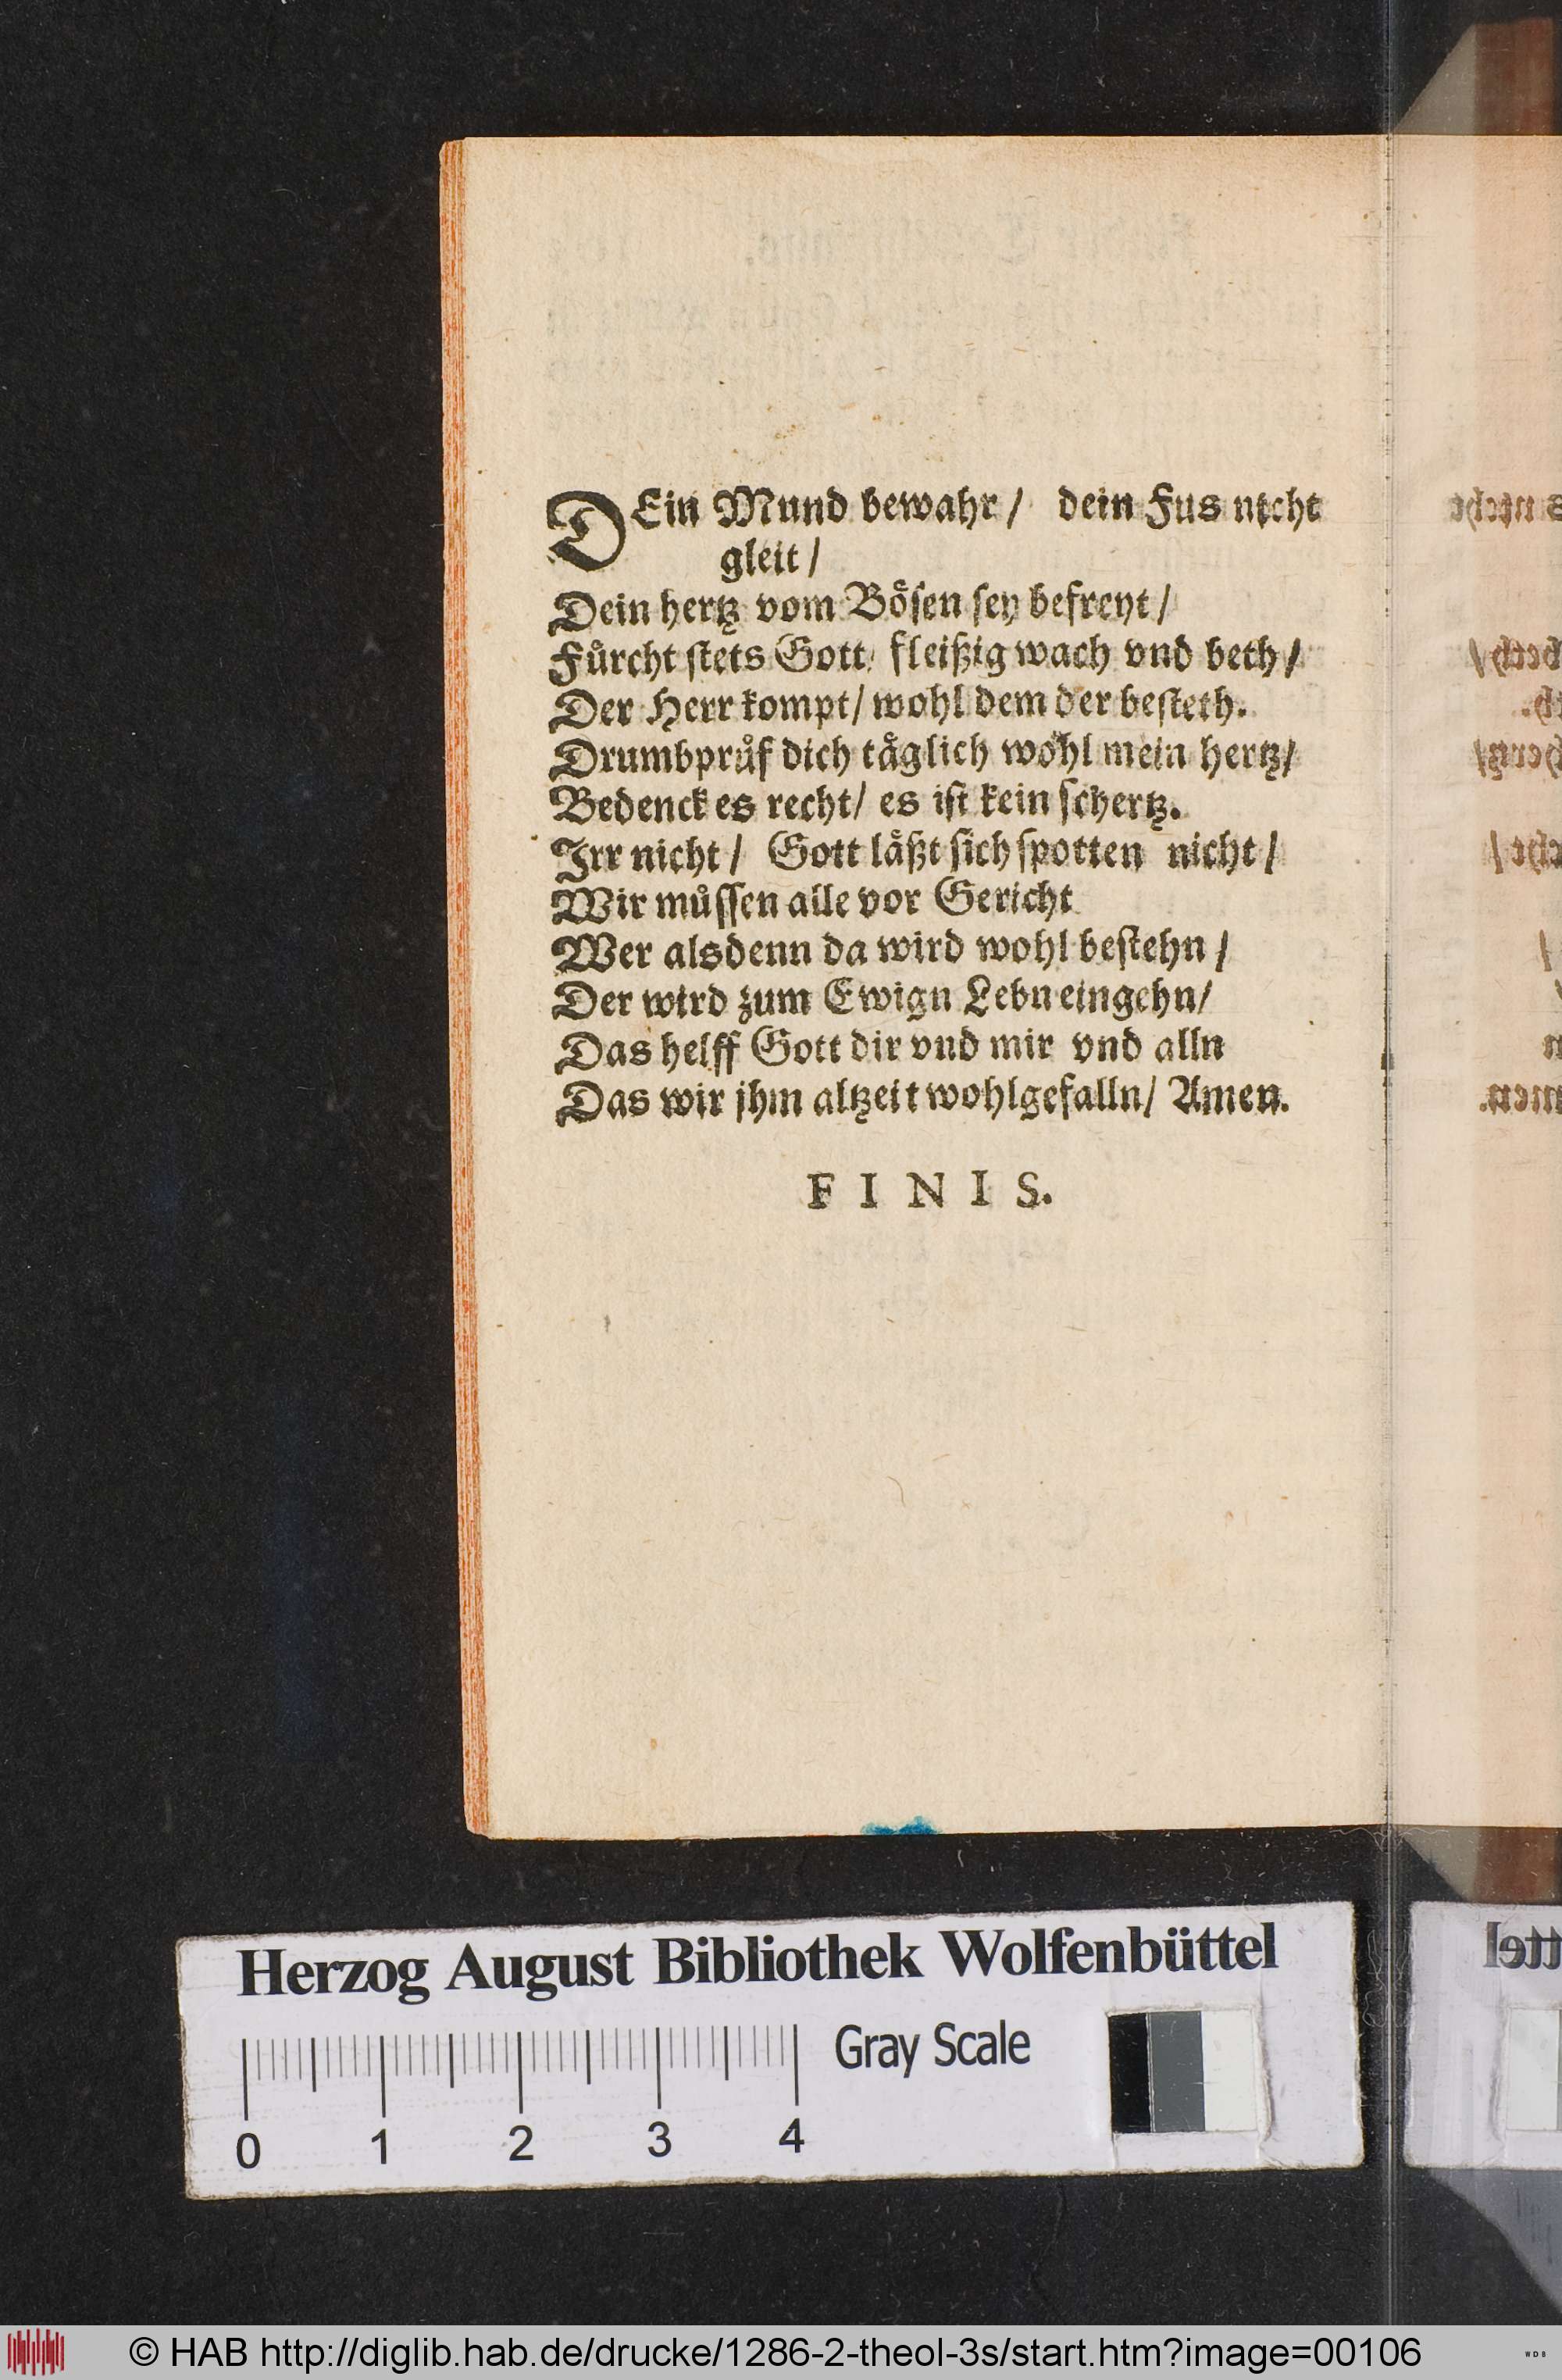 DEin Mund bewahr / dein Fus nicht
gleit /
Dein hertz vom Boͤſen ſey befreyt /
Fuͤrcht ſtets Gott / fleißig wach vnd beth /
Der Herr kompt / wohl dem der beſteth.
Drumb pruͤf dich taͤglich wohl mein hertz /
Bedenck es recht / es iſt kein ſchertz.
Irr nicht / Gott laͤßt ſich ſpotten nicht /
Wir muͤſſen alle vor Gericht
Wer alsdenn da wird wohl beſtehn /
Der wird zum Ewign Lebn eingehn /
Das helff Gott dir vnd mir vnd alln
Das wir jhm altzeit wohlgefalln / Amen.
F I N I S.
Herzog August Bibliothek Wolfenbüttel
Gray Scale
0 1 2 3 4
© HAB http://diglib.hab.de/drucke/1286-2-theol-3s/start.htm?image=00106
WDB